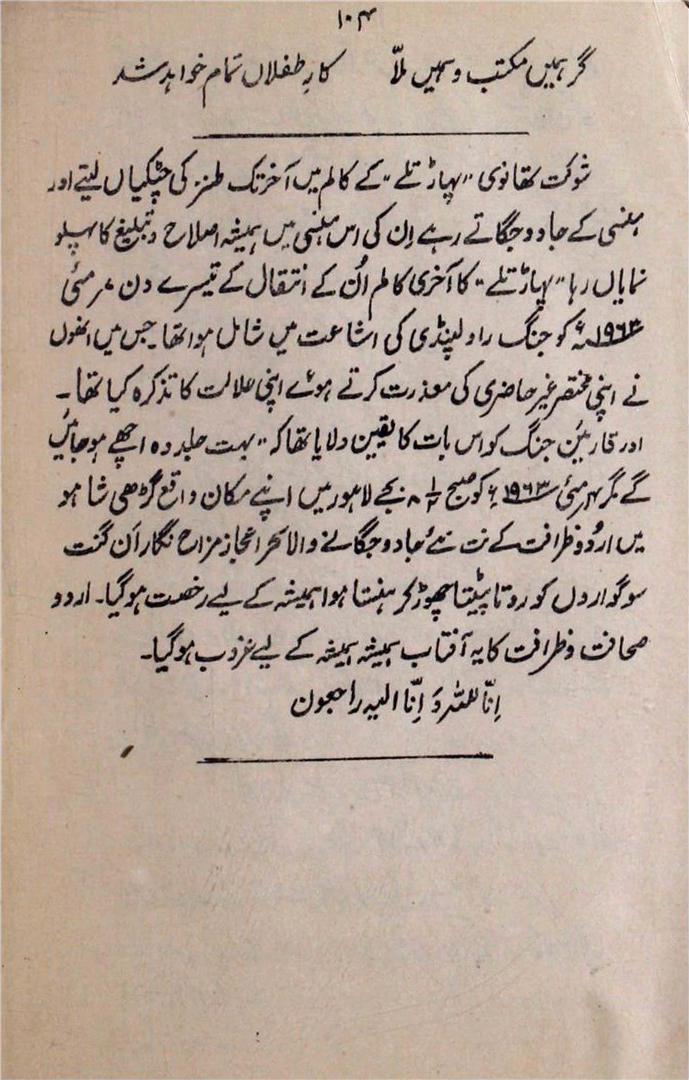 ۱۰۴
گر ہمیں مکتب و ہمیں ملّا کارِ طفلاں تمام خواہد شد
شوکت تھانوی "پہاڑ تلے" کے کالم میں آخر تک طنز کی چٹکیاں لیتے اور
ہنسی کے جادو جگاتے رہے اِن کی اس ہنسی میں ہمیشہ اصلاح و تبلیغ کا پہلو
نمایاں رہا "پہاڑ تلے" کا آخری کالم اُن کے انتقال کے تیسرے دن ۷ مئی
۱۹۶۳ء کو جنگ راولپنڈی کی اشاعت میں شامل ہوا تھا۔ جس میں انھوں
نے اپنی مختصر غیر حاضری کی معذرت کرتے ہوئے اپنی علالت کا تذکرہ کیا تھا۔
اور قارئین جنگ کو اس بات کا یقین دلایا تھا کہ "بہت جلد وہ اچھے ہو جائیں
گے مگر ۴ مئی ۱۹۶۳ء کو صبح ۸½ بجے لاہور میں اپنے مکان واقع گڑھی شاہو
میں اردُو ظرافت کے نت نئے جادو جگانے والا سحر اعجاز مزاح نگار اَن گنت
سوگواروں کو روتا پیٹتا چھوڑ کر ہنستا ہوا ہمیشہ کے لیے رخصت ہو گیا۔ اردو
صحافت و ظرافت کا یہ آفتاب ہمیشہ ہمیشہ کے لیے غروب ہو گیا۔
اِنّا للہ وَ اِنّا الیہ راجعون